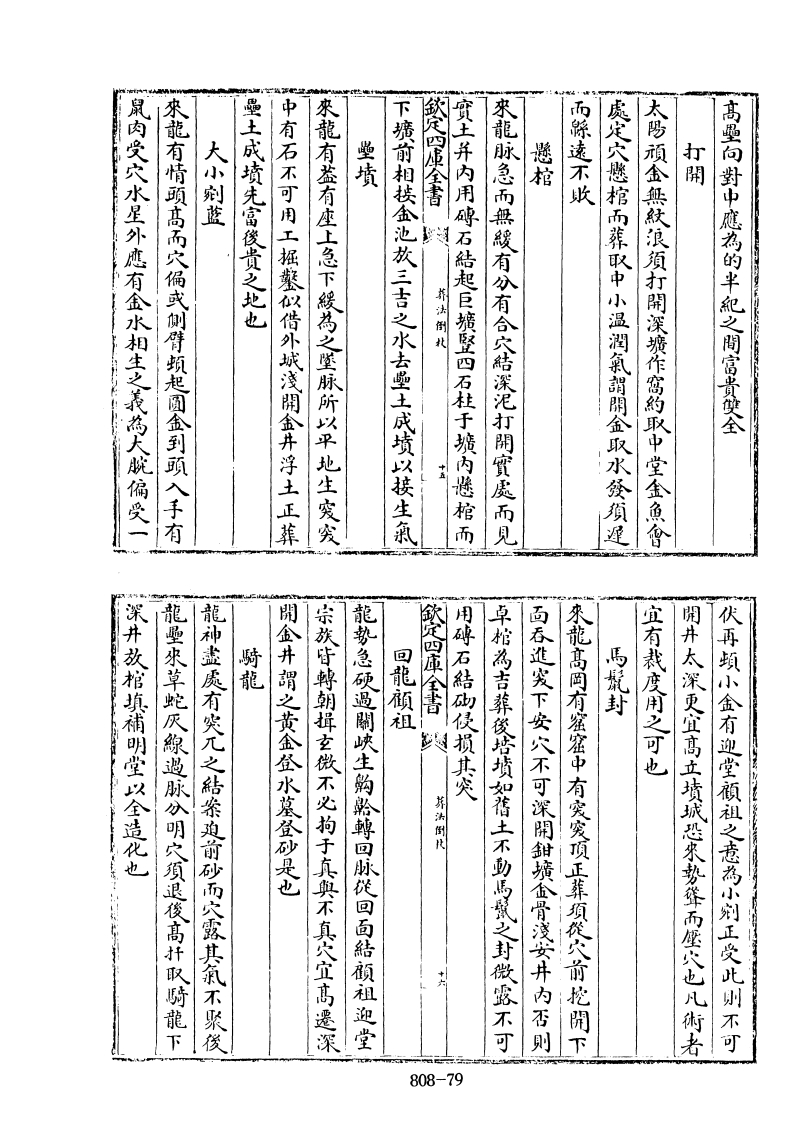 高壘向對中應為的半紀之間富貴雙全
打開
太陽頑金無紋浪須打開深壙作窩約取中堂金魚會
處定穴懸棺而葬取中小温潤氣謂開金取水發須遲
而緜遠不敗
懸棺
來龍脉急而無緩有分有合穴結深泥打開實處而見
實土并内用磚石結起巨壙豎四石柱于壙内懸棺而
欽定四庫全書
葬法倒杖
十五
下壙前相接金池放三吉之水去壘土成墳以接生氣
壘墳
來龍有葢有座上急下緩為之墜脉所以平地生突突
中有石不可用工掘鑿似借外城淺開金井浮土正葬
壘土成墳先富後貴之地也
大小剜藍
來龍有情頭高而穴偏或側臂頓起圓金到頭入手有
鼠肉受穴水星外應有金水相生之義為大脘偏受一
伏再頓小金有迎堂顧祖之意為小剜正受此則不可
開井太深更宜高立墳城恐來勢聳而壓穴也凡術者
宜有裁度用之可也
馬鬛封
來龍高岡有窟窟中有突突頂正葬須從穴前挖開下
面吞進突下安穴不可深開鉗壙金骨淺安井内否則
卓棺為吉葬後培墳如舊土不動馬鬛之封微露不可
用磚石結砌侵損其突
欽定四庫全書
葬法倒杖
十六
回龍顧祖
龍勢急硬過關峽生齁齡轉回脉從回面結顧祖迎堂
宗族皆轉朝揖玄微不必拘于真與不真穴宜高遷深
開金井謂之黄金登水墓登砂是也
騎龍
龍神盡處有突兀之結案迫前砂而穴露其氣不聚後
龍壘來草蛇灰線過脉分明穴須退後高扦取騎龍下
深井放棺填補明堂以全造化也
808-79